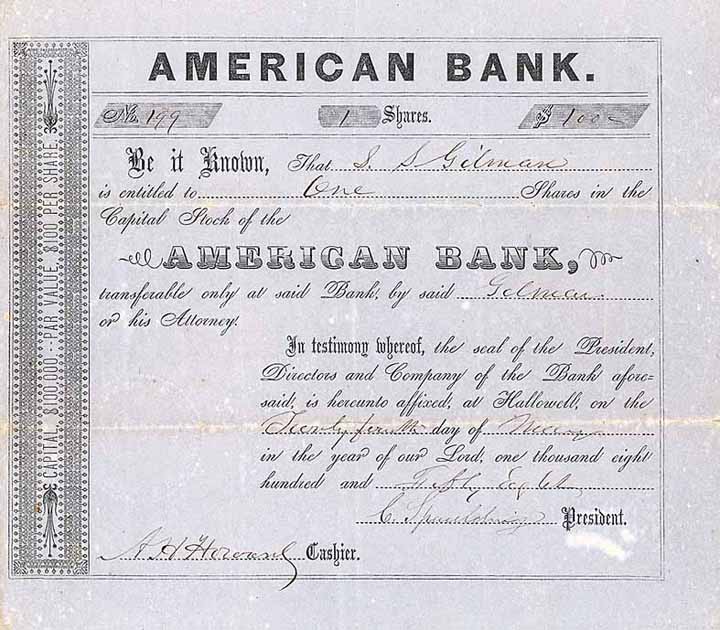 AMERICAN BANK.
No. 199 1 Shares. $ 100-
Be it Known, That S. S Gilman
is entitled to One Shares in the
Capital Stock of the
AMERICAN BANK,
transferable only at said Bank, by said Gilman
or his Attorney.
In testimony whereof, the seal of the President,
Directors and Company of the Bank afore-
said, is hereunto affixed, at Hallowell, on the
Twenty fourth day of
in the year of our Lord, one thousand eight
hundred and Fifty Eight
C. Spaulding President.
A H Howard Cashier.
CAPITAL, $100,000:--PAR VALUE, $100 PER SHARE.